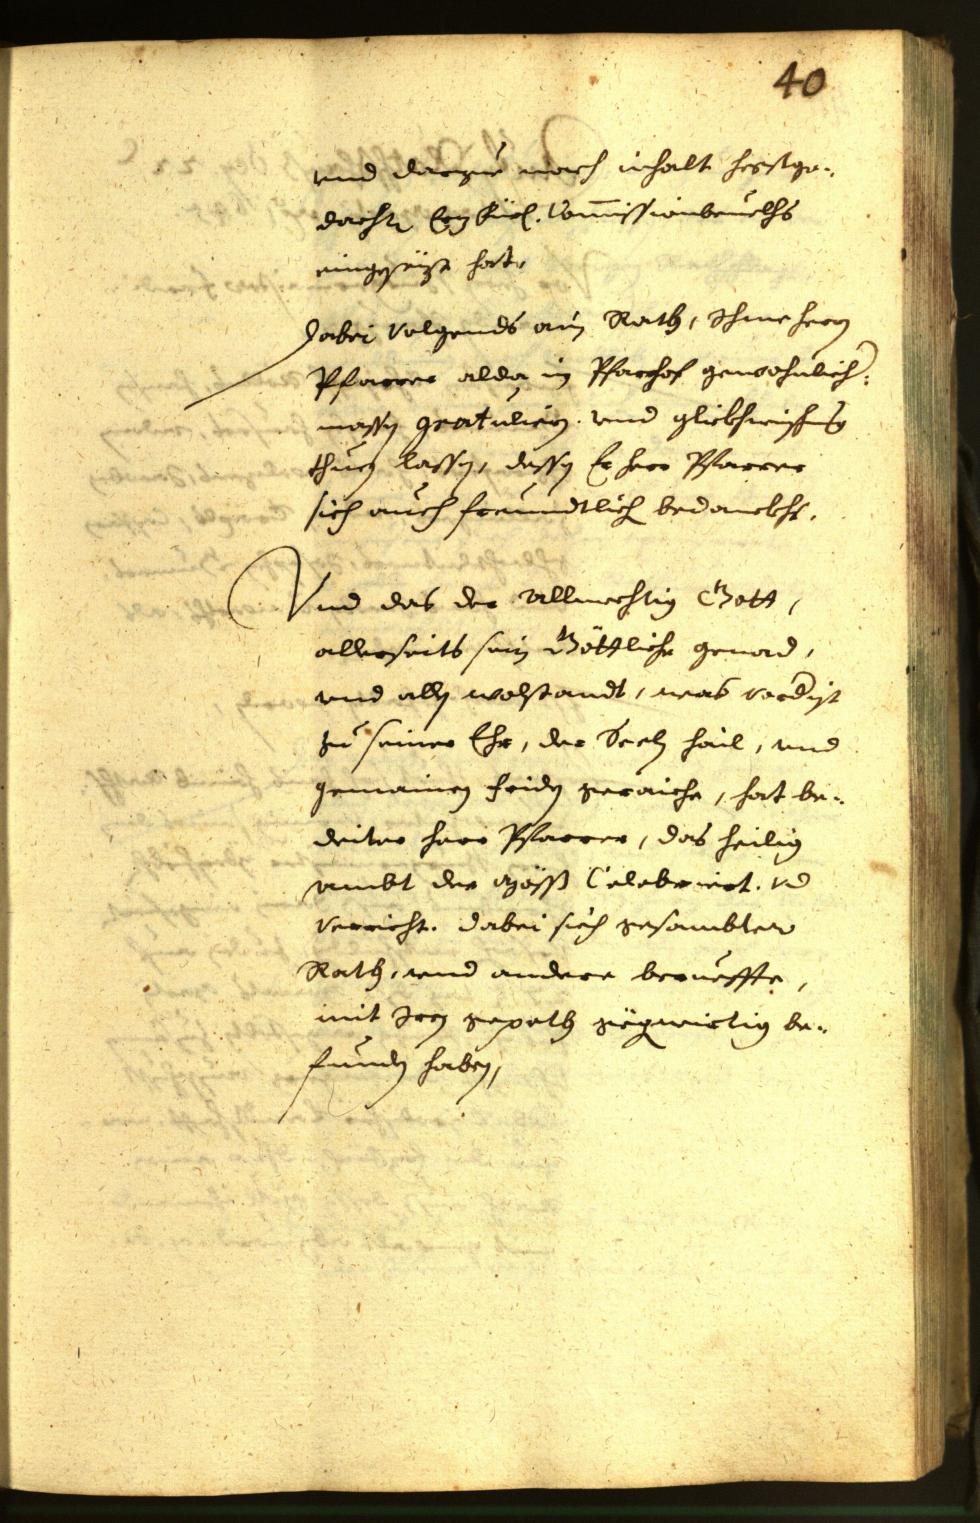 40
vnd darzue nach inhalt hochstge-
dachter Kay: Commissionbeuelhs
eingesezt hat.
Dabei volgends ain Rath, Ihme hern
Pfarrer alda in Pfarrhof gewohnlicher
massen gratulirn vnd glickhwinschung
thuen lassen, dessen Er herr Pfarrer
sich auch freundtlich bedanckht.
Vnd das der Allmechtig Gott,
allerseits sein Göttliche genad,
vnd allen wolstandt, was vordist
zu seiner Ehr, der Seeln hail, vnd
gemainen friden geraiche, hat be-
deiter herr Pfarrer, das heilig
ambt der Mäss Celebriert vnd
verricht. dabei sich gesambter
Rath, vnd andere berueffte,
mit Iren gepeth gegenwirtig be-
funden haben,